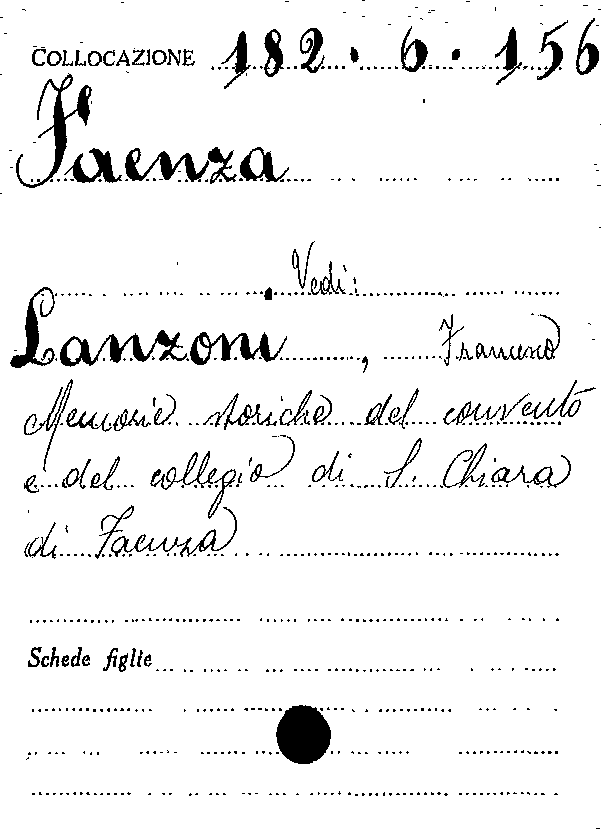 COLLOCAZIONE 182.6.156
Faenza
Vedi:
Lanzoni, Francesco
Memorie storiche del convento
e del collegio di S. Chiara
di Faenza
Schede figlie